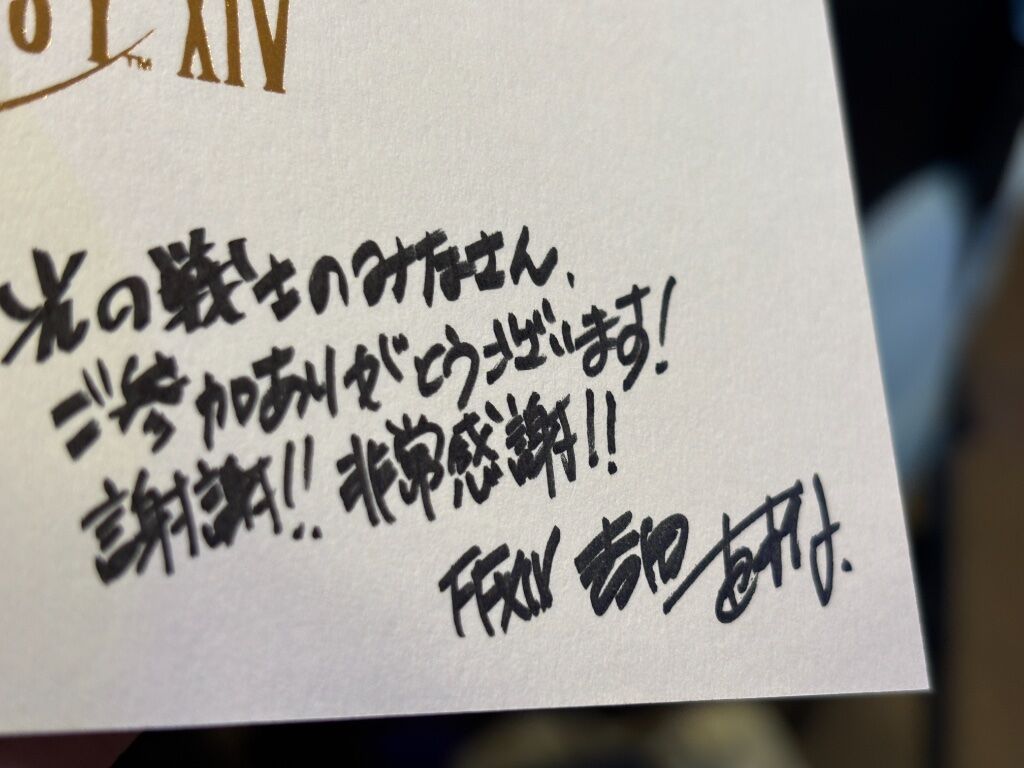 XIV
光の戦士のみなさん、
ご参加ありがとうございます！
謝謝!! 非常感謝!!
FFXIV 吉田